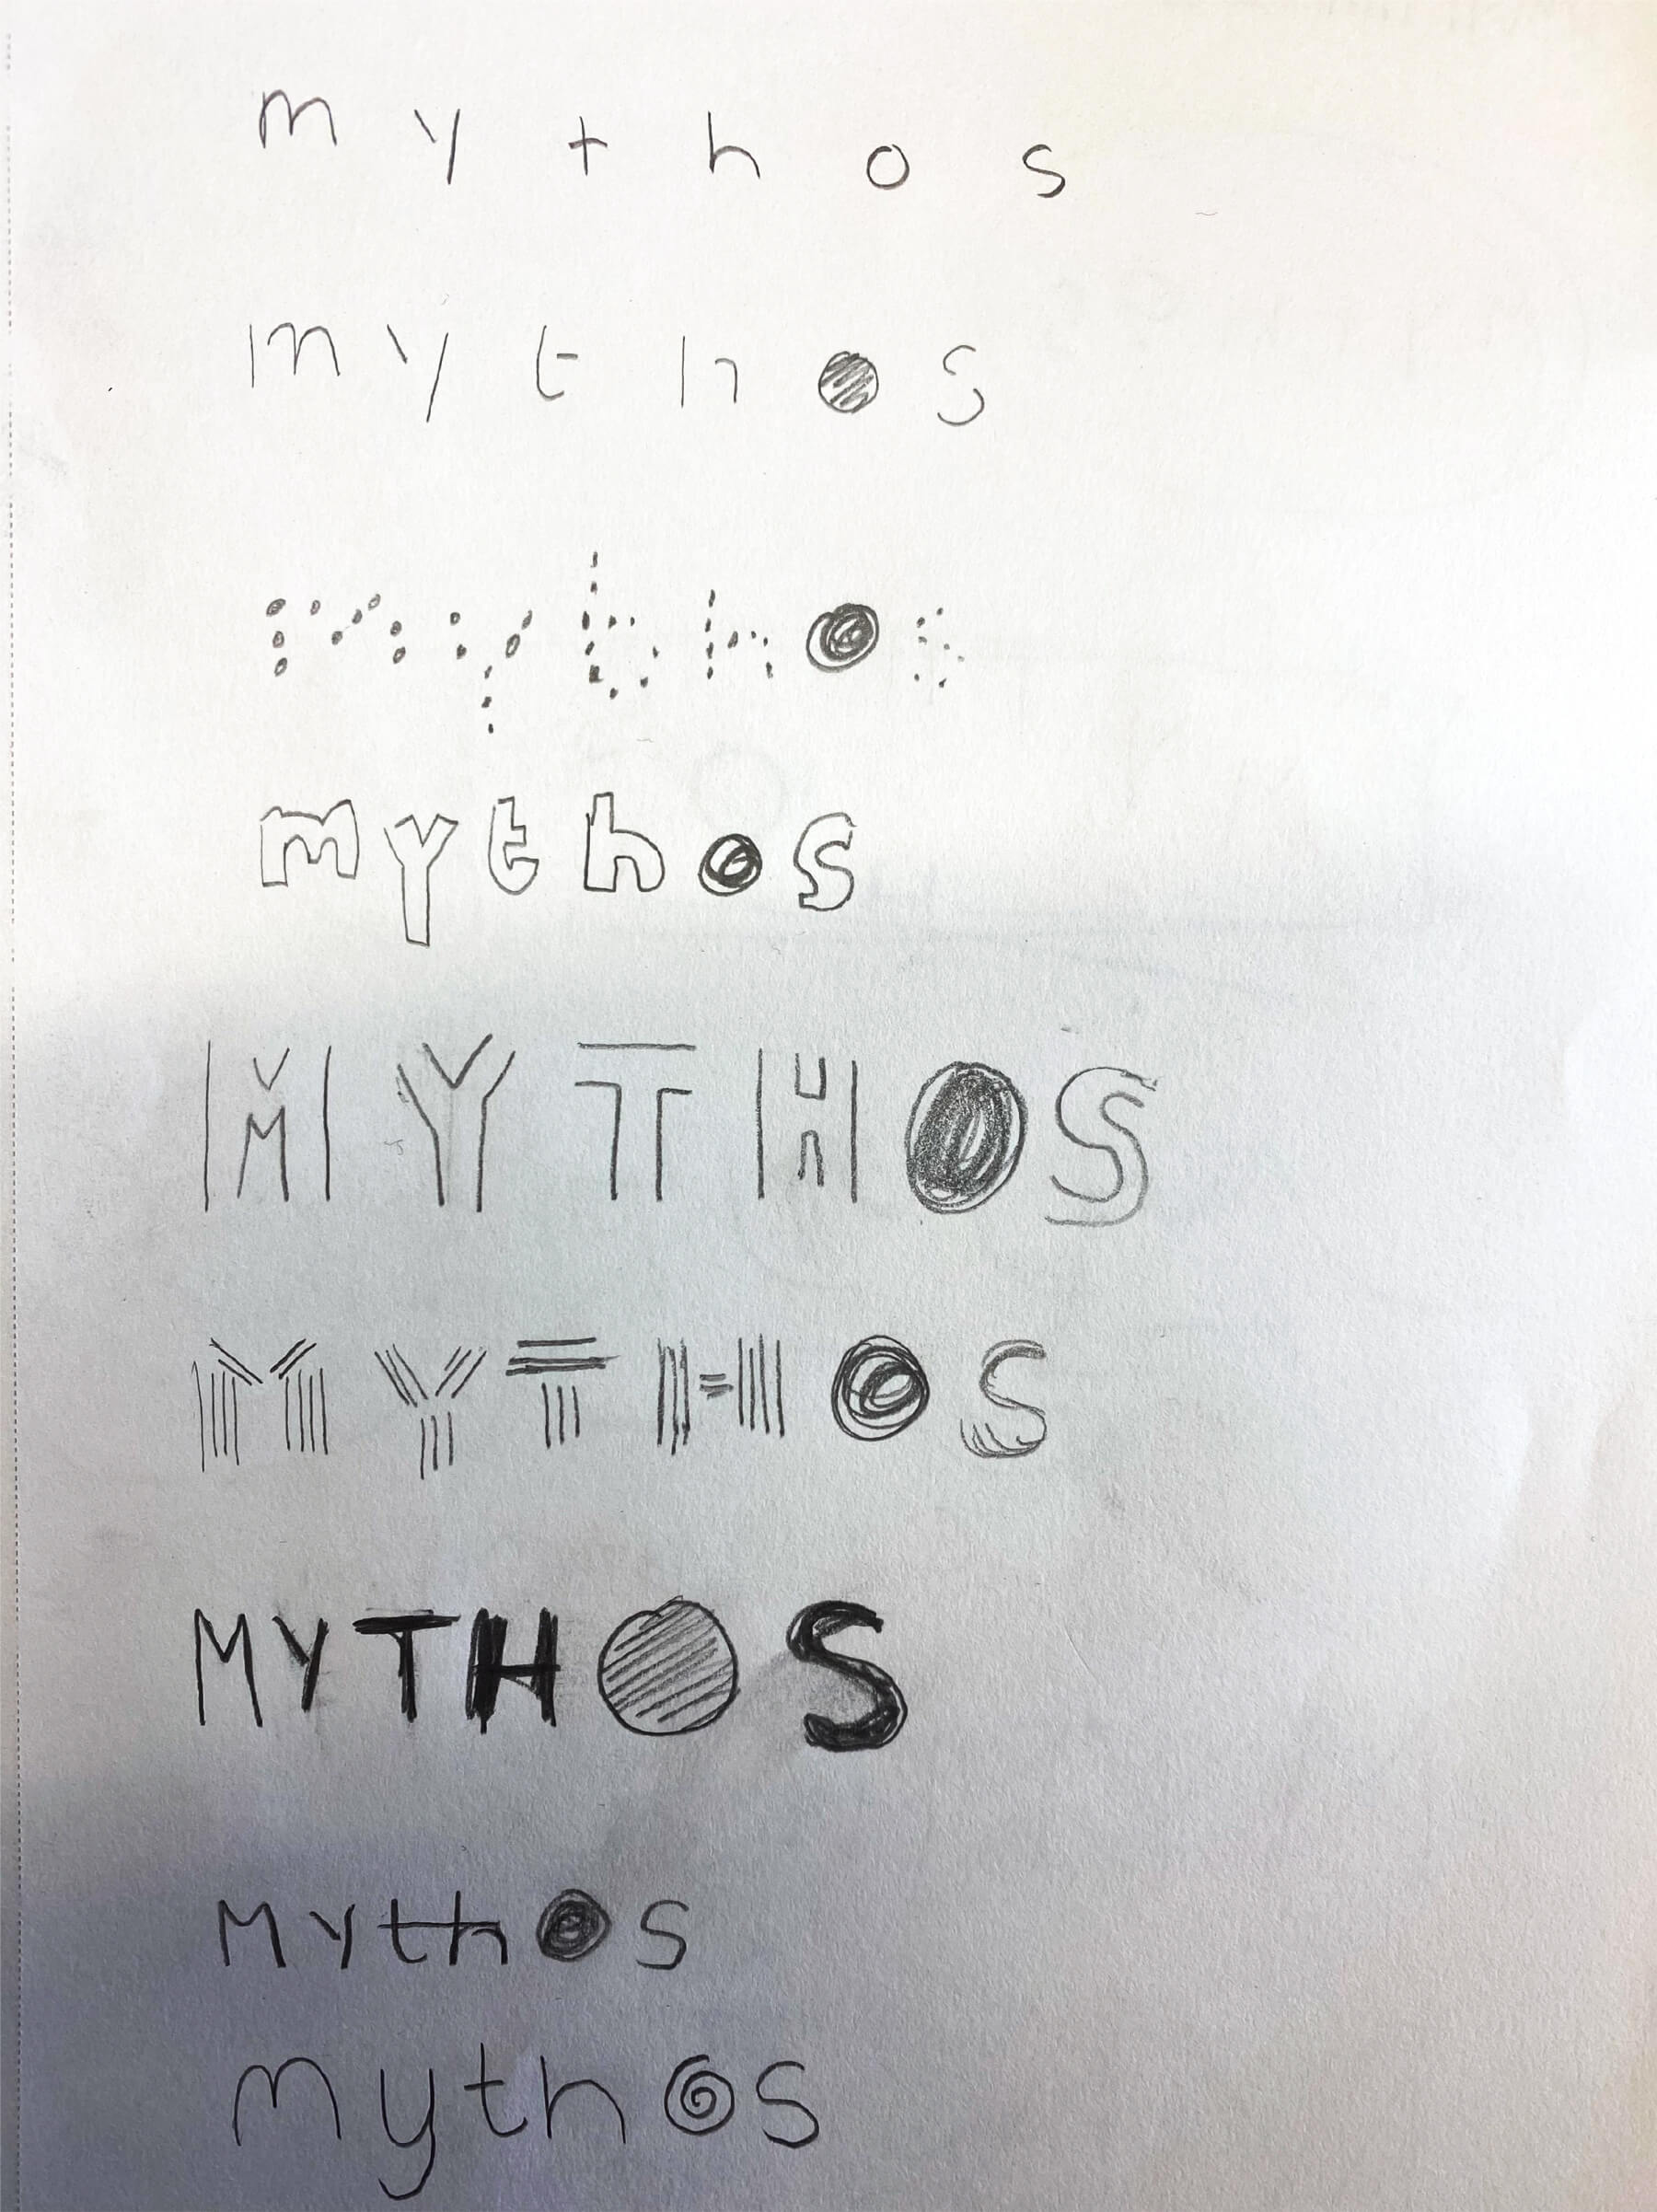 mythos
mythos
mythos
mythos
MYTHOS
MYTHOS
MYTHOS
Mythos
mythos